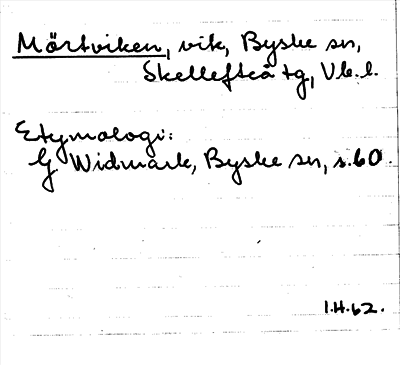 Mörtviken, vik, Byske sn,
Skellefteå tg, Vb. l.
Etymologi:
G Widmark, Byske sn, s. 60.
I.H.62.